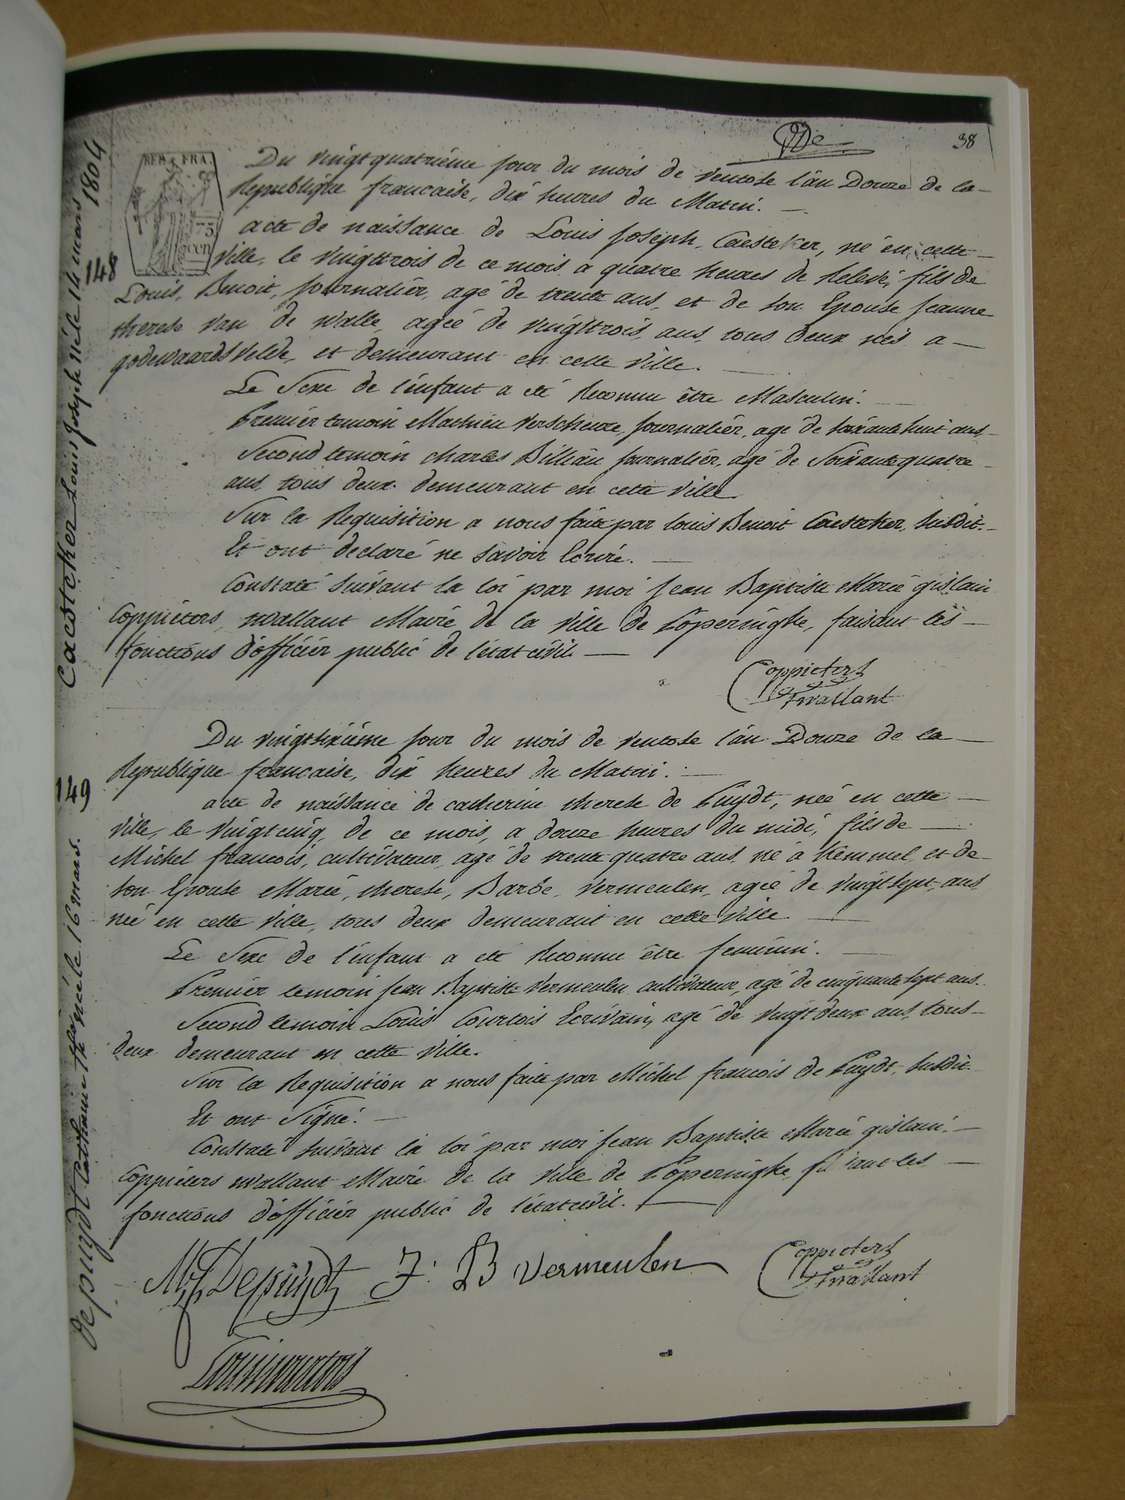 38
REP. FRA.
75
cen
Du vingtquatriéme jour du mois de ventose l'an Douze de la
Republique francaise, dix heures du Matin.
acte de naissance de Louis Joseph Caesteker, né en cette
ville, le vingttrois de ce mois a quatre heures de relevé, fils de
Louis Benoit, Journalier, agé de trente ans, et de son Epouse Jeanne
therese Van de Walle, agée de vingttrois ans, tous deux nés a
godewaardsvelde, et demeurant en cette ville.
Le Sexe de l'enfant a eté Reconnu être Masculin.
Premier temoin Mathieu Verscheure, Journalier, agé de soixantehuit ans
Second temoin charles Billiau journalier, agé de Soixantequatre
ans, tous deux demeurant en cette ville
Sur la Requisition a nous faite par louis Benoit Caesteker, susdit.
Et ont declaré ne savoir Ecrire.
Constaté suivant la loi par moi Jean Baptiste Marie gislain
Coppieters, wallant Maire de la ville de Poperinghe, faisant les
fonctions d'officier public de l'état civil
Coppieters
twallant
148
Caesteker Louis Joseph Né le 14 mars 1804
Du vingtsixiéme jour du mois de ventose l'an Douze de la
Republique francaise, dix heures du Matin.
acte de naissance de catherine therese de Puydt, née en cette
ville, le vingtcinq de ce mois, a douze heures du midi, fils de
Michel francois, cultivateur, agé de trente quatre ans, né a Kemmel, et de
son Epouse Marie, therese, Barbe, Vermeulen, agée de vingtsept ans
née en cette ville, tous deux demeurant en cette ville
Le Sexe de l'enfant a eté Reconnu être feminin.
Premier temoin Jean Baptiste Vermeulen cultivateur, agé de cinquantesept ans.
Second temoin Louis Courtois Ecrivain, agé de vingtdeux ans, tous
deux demeurant en cette ville.
Sur la Requisition a nous faite par Michel francois de Puydt, susdit
Et ont Signé.
Constaté suivant la loi par moi Jean Baptiste Marie gislain
Coppieters wallant Maire de la ville de Poperinghe, faisant les
fonctions d'officier public de l'état civil.
149
depuydt Catharine née le 16 mars.
M, f, Depuydt J. B Vermeulen
Coppieters
twallant